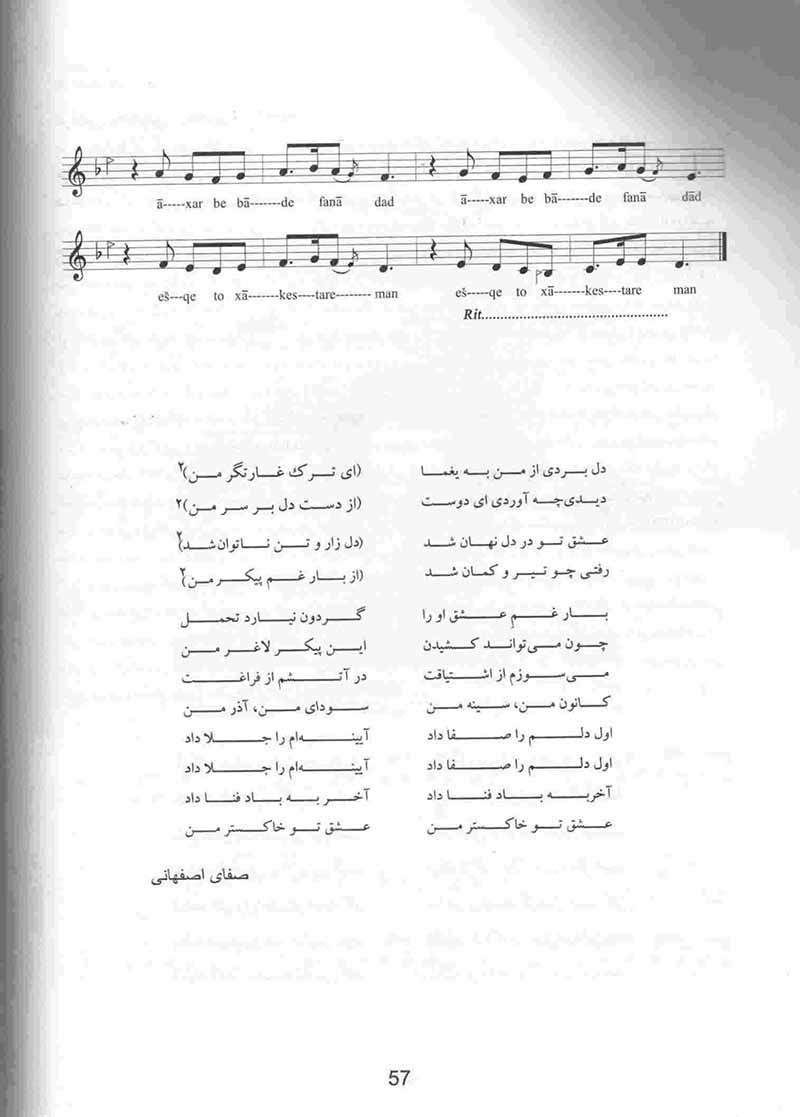 ā-----xar be bā-------de fanā dad ā----xar be bā-----de fanā dād
eš---qe to xā-------kes----tare-------- man eš-----qe to xā-------kes----tare man
Rit................................................
دل بردی از من به یغما (ای ترک غارتگر من)۲
دیدی‌چه آوردی ای دوست (از دست دل بر سر من)۲
عشق تو در دل نهان شد (دل زار و تن ناتوان‌شد)۲
رفتی چو تیر و کمان شد (از بار غم پیکر من)۲
بار غم عشق او را گردون نیارد تحمل
چون می‌تواند کشیدن این پیکر لاغر من
می‌سوزم از اشتیاقت در آتشم از فراغت
کانون من، سینه من سودای من، آذر من
اول دلم را صفا داد آیینه‌ام را جلا داد
اول دلم را صفا داد آیینه‌ام را جلا داد
آخربه باد فنا داد آخر به باد فنا داد
عشق تو خاکستر من عشق تو خاکستر من
صفای اصفهانی
57